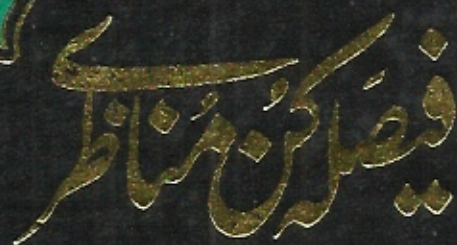 فیصلہ کُن مُناظرے